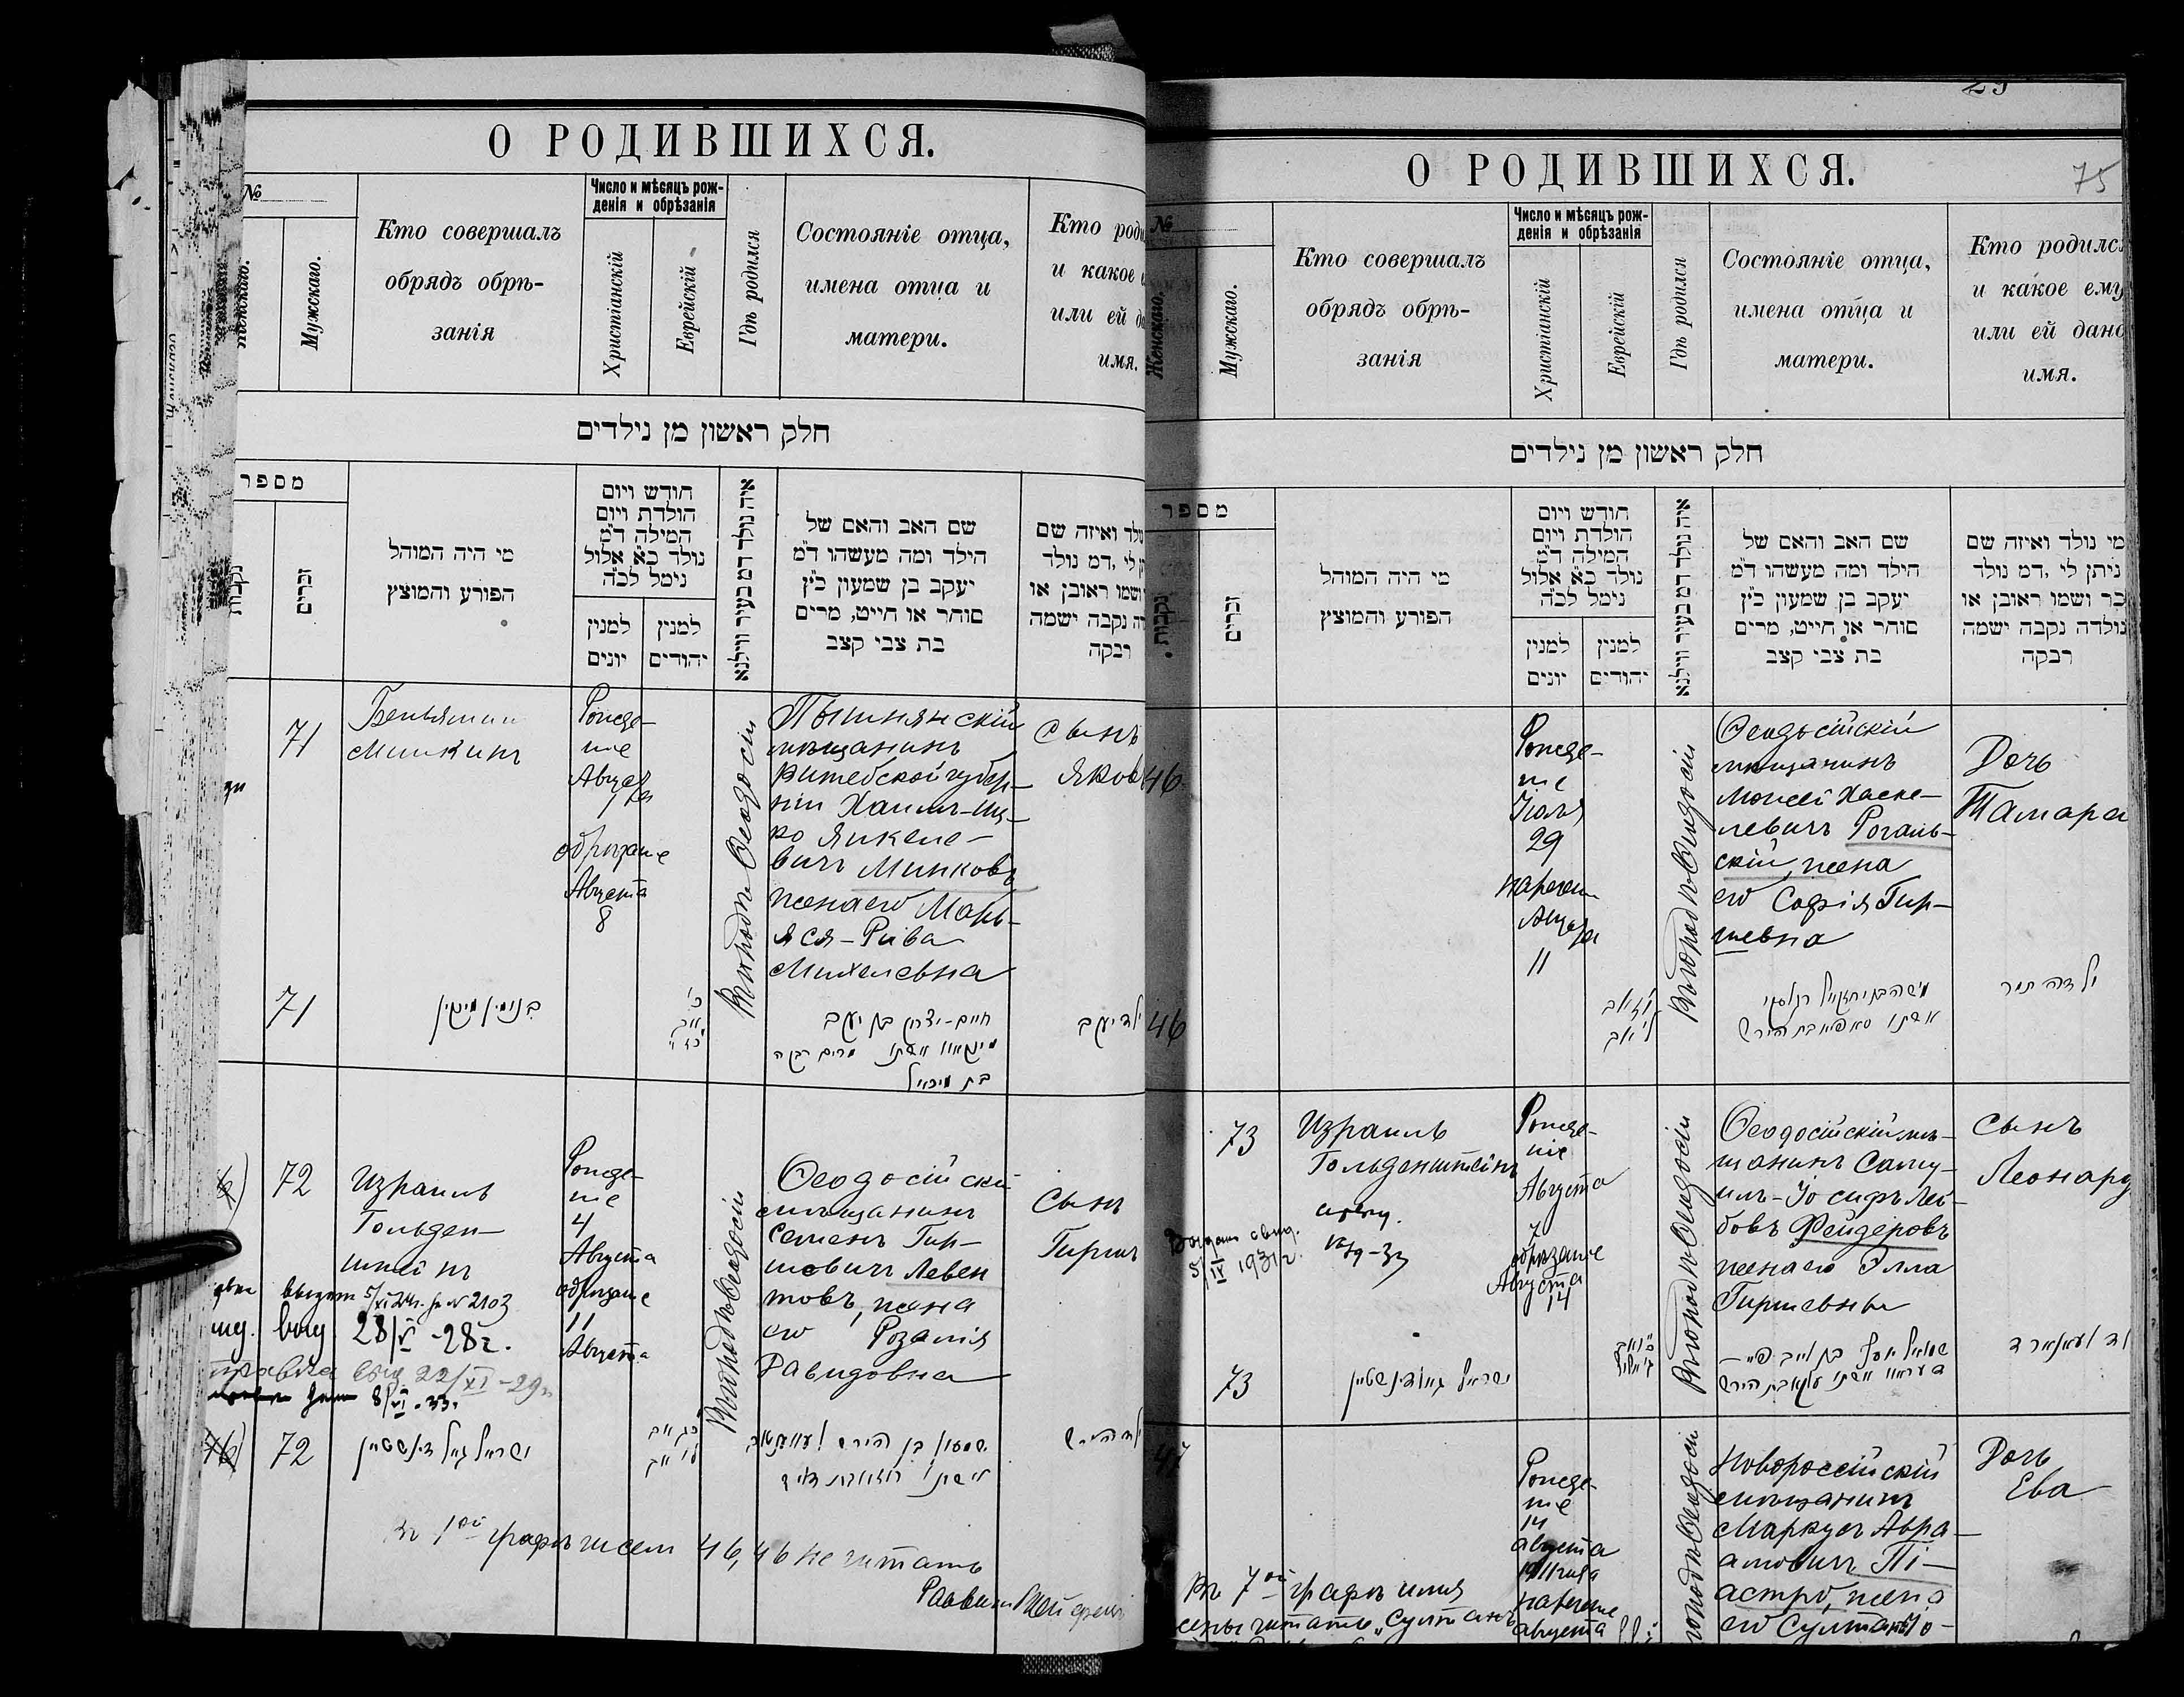 О РОДИВШИХСЯ.
№
Женскаго.
Мужскаго.
Кто совершалъ
обрядъ обрѣ-
занія
Число и мѣсяцъ рож-
денія и обрѣзанія
Христіанскій
Еврейскій
Гдѣ родился
Состояніе отца,
имена отца и
матери.
Кто роди
и какое
или ей да
имя.
חלק ראשון מן נילדים
מספר
נקבות
זכרים
מי היה המוהל
הפורע והמוצץ
חודש ויום
הולדת ויום
המילה ד״מ
נולד כ״א אלול
נימל לכ״ה
למנין
יונים
למנין
יהודים
איה נולד דמ בעיר ווילנא
שם האב והאם של
הילד ומה מעשהו ד״מ
יעקב בן שמעון כ״ץ
סוחר או חייט, מרים
בת צבי קצב
נולד ואיזה שם
לי, דמ נולד
ושמו ראובן או
נקבה ישמה
רבקה
71
Беньямин
Минкинъ
Рожде-
ніе
Августа
1
обрѣзаніе
Августа
8
Въ городѣ Ѳеодосіи
Пышнянскій
мѣщанинъ
Витебской губер-
ніи Хаимъ-Иц-
ко Янкеле-
вичъ Минковъ
жена его Марь-
яся-Рива
Михелевна
Сынъ
Яковъ
71
בנימין מינקין
חיים-יצחק בן יעקב
מינקאוו אשתו מרים רבקה
בת מיכאל
ילד יעקב
72
Израиль
Гольден-
штейнъ
Рожде-
ніе
4
Августа
обрѣзаніе
11
Августа
Въ городѣ Ѳеодосіи
Ѳеодосійскій
мѣщанинъ
Семенъ Гир-
шовичъ Левен
товъ, жена
его Розалія
Давидовна
Сынъ
Гиршъ
28/V - 28 г.
22/XI - 29
8/VI - 33.
72
ישראל גאלדענשטיין
שמעון בן הירש לעווענטאוו
אשתו ראזאליא בת דוד
ילד הירש
Въ 1ой графѣ чисел 46, 46 не читать
Раввинъ
О РОДИВШИХСЯ.
75
№
Женскаго.
Мужскаго.
Кто совершалъ
обрядъ обрѣ-
занія
Число и мѣсяцъ рож-
денія и обрѣзанія
Христіанскій
Еврейскій
Гдѣ родился
Состояніе отца,
имена отца и
матери.
Кто родился
и какое ему
или ей дано
имя.
חלק ראשון מן נילדים
מספר
נקבות
זכרים
מי היה המוהל
הפורע והמוצץ
חודש ויום
הולדת ויום
המילה ד״מ
נולד כ״א אלול
נימל לכ״ה
למנין
יונים
למנין
יהודים
איה נולד דמ בעיר ווילנא
שם האב והאם של
הילד ומה מעשהו ד״מ
יעקב בן שמעון כ״ץ
סוחר או חייט, מרים
בת צבי קצב
מי נולד ואיזה שם
ניתן לי, דמ נולד
זכר ושמו ראובן או
נולדה נקבה ישמה
רבקה
46
Рожде-
ніе
Іюля
29
наречен
Августа
11
Въ городѣ Ѳеодосіи
Ѳеодосійскій
мѣщанинъ
Моисей Хаске-
левичъ Рогаль-
скій, жена
его Софія Гир-
шевна
Дочь
Тамара
46
משה בן יחזקאל רגלסקי
אשתו סאפיא בת הירש
ילדה תמר
73
Израиль
Гольденштейнъ
Рожде-
ніе
Августа
7
обрѣзаніе
Августа
14
Въ городѣ Ѳеодосіи
Ѳеодосійскій мѣ-
щанинъ Саму-
илъ-Іосифъ Лей-
бовъ Фейдеровъ
жена его Элла
Гиршевна
Сынъ
Леонард
5/IX 1931 г.
73
ישראל גאלדענשטיין
שמואל יוסף בן לייב פיי-
דעראוו אשתו עלא בת הירש
ילד לעאנארד
47
Рожде-
ніе
14
августа
1911 года
наречение
августа
Новороссійскій
мѣщанинъ
Маркусъ Авра-
амовичъ Пі-
астро, жена
его Султанъ
Дочь
Ева
Въ 7ой графѣ имя
жены читать „Султанъ